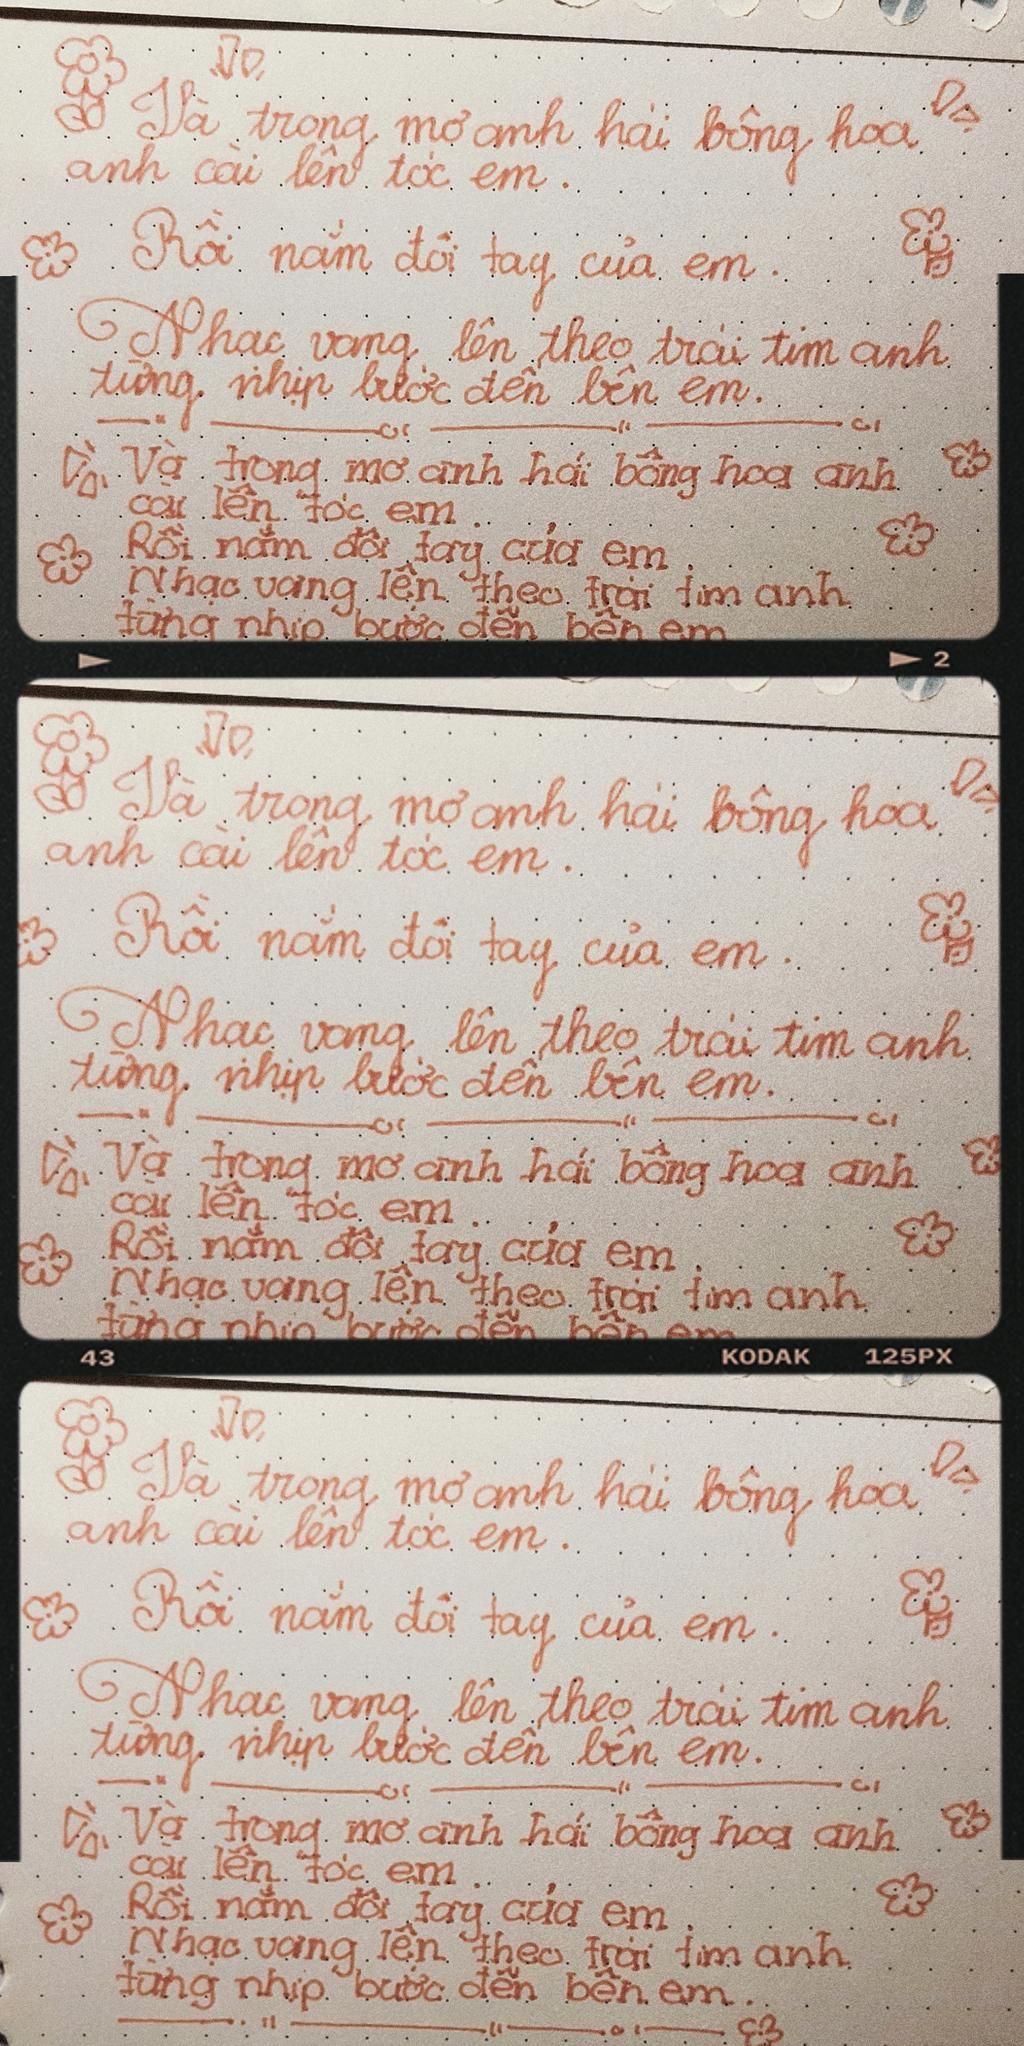 Và trong mơ anh hái bông hoa
anh cài lên tóc em.
Rồi nắm đôi tay của em.
Nhạc vang lên theo trái tim anh
từng nhịp bước đến bên em.
Và trong mơ anh hái bông hoa anh
cài lên tóc em.
Rồi nắm đôi tay của em.
Nhạc vang lên theo trái tim anh
từng nhịp bước đến bên em
2
Và trong mơ anh hái bông hoa
anh cài lên tóc em.
Rồi nắm đôi tay của em.
Nhạc vang lên theo trái tim anh
từng nhịp bước đến bên em.
Và trong mơ anh hái bông hoa anh
cài lên tóc em.
Rồi nắm đôi tay của em.
Nhạc vang lên theo trái tim anh
từng nhịp bước đến bên em
43 KODAK 125PX
Và trong mơ anh hái bông hoa
anh cài lên tóc em.
Rồi nắm đôi tay của em.
Nhạc vang lên theo trái tim anh
từng nhịp bước đến bên em.
Và trong mơ anh hái bông hoa anh
cài lên tóc em.
Rồi nắm đôi tay của em.
Nhạc vang lên theo trái tim anh
từng nhịp bước đến bên em.